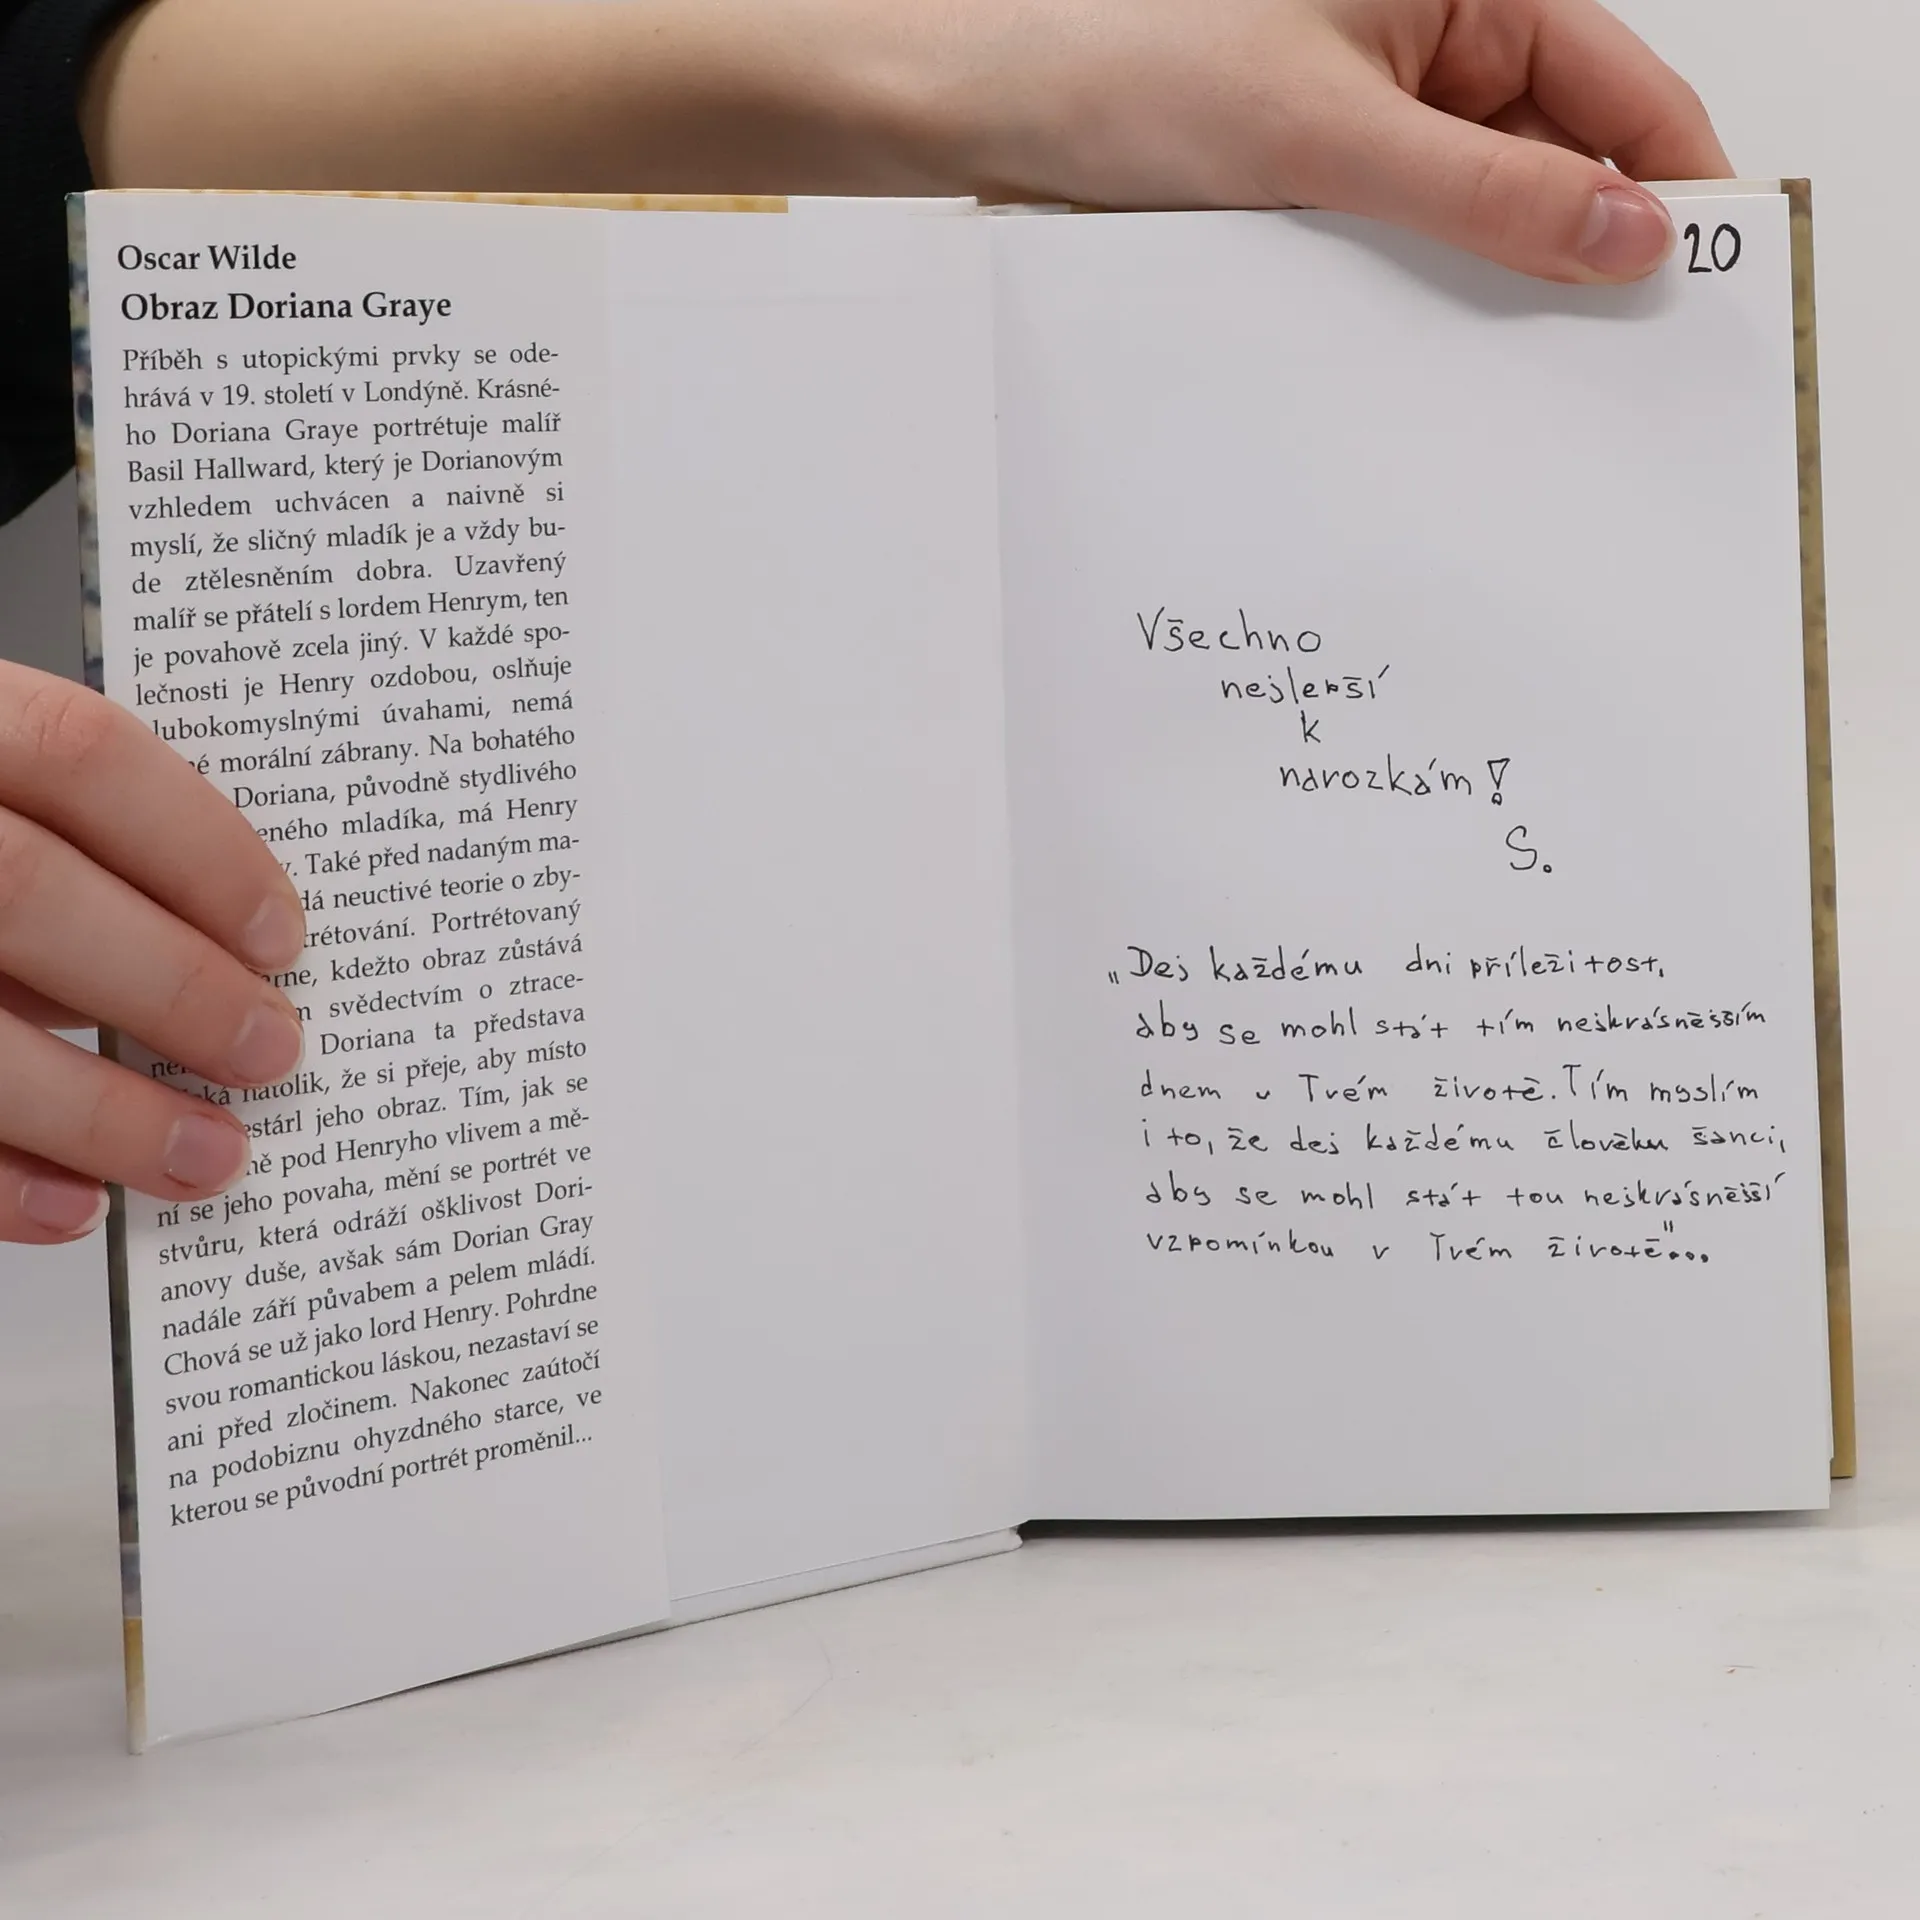 Oscar Wilde
Obraz Doriana Graye
Příběh s utopickými prvky se ode-
hrává v 19. století v Londýně. Krásné-
ho Doriana Graye portrétuje malíř
Basil Hallward, který je Dorianovým
vzhledem uchvácen a naivně si
myslí, že sličný mladík je a vždy bu-
de ztělesněním dobra. Uzavřený
malíř se přátelí s lordem Henrym, ten
je povahově zcela jiný. V každé spo-
lečnosti je Henry ozdobou, oslňuje
lubokomyslnými úvahami, nemá
é morální zábrany. Na bohatého
Doriana, původně stydlivého
eného mladíka, má Henry
v. Také před nadaným ma-
dá neuctivé teorie o zby-
trétování. Portrétovaný
rne, kdežto obraz zůstává
m svědectvím o ztrace-
Doriana ta představa
ká natolik, že si přeje, aby místo
estárl jeho obraz. Tím, jak se
ně pod Henryho vlivem a mě-
ní se jeho povaha, mění se portrét ve
stvůru, která odráží ošklivost Dori-
anovy duše, avšak sám Dorian Gray
nadále září půvabem a pelem mládí.
Chová se už jako lord Henry. Pohrdne
svou romantickou láskou, nezastaví se
ani před zločinem. Nakonec zaútočí
na podobiznu ohyzdného starce, ve
kterou se původní portrét proměnil...
20
Všechno
nejlepší
k
narozkám!
S.
„Dej každému dni příležitost,
aby se mohl stát tím nejkrásnějším
dnem v Tvém životě. Tím myslím
i to, že dej každému člověku šanci,
aby se mohl stát tou nejkrásnější
vzpomínkou v Tvém životě"...